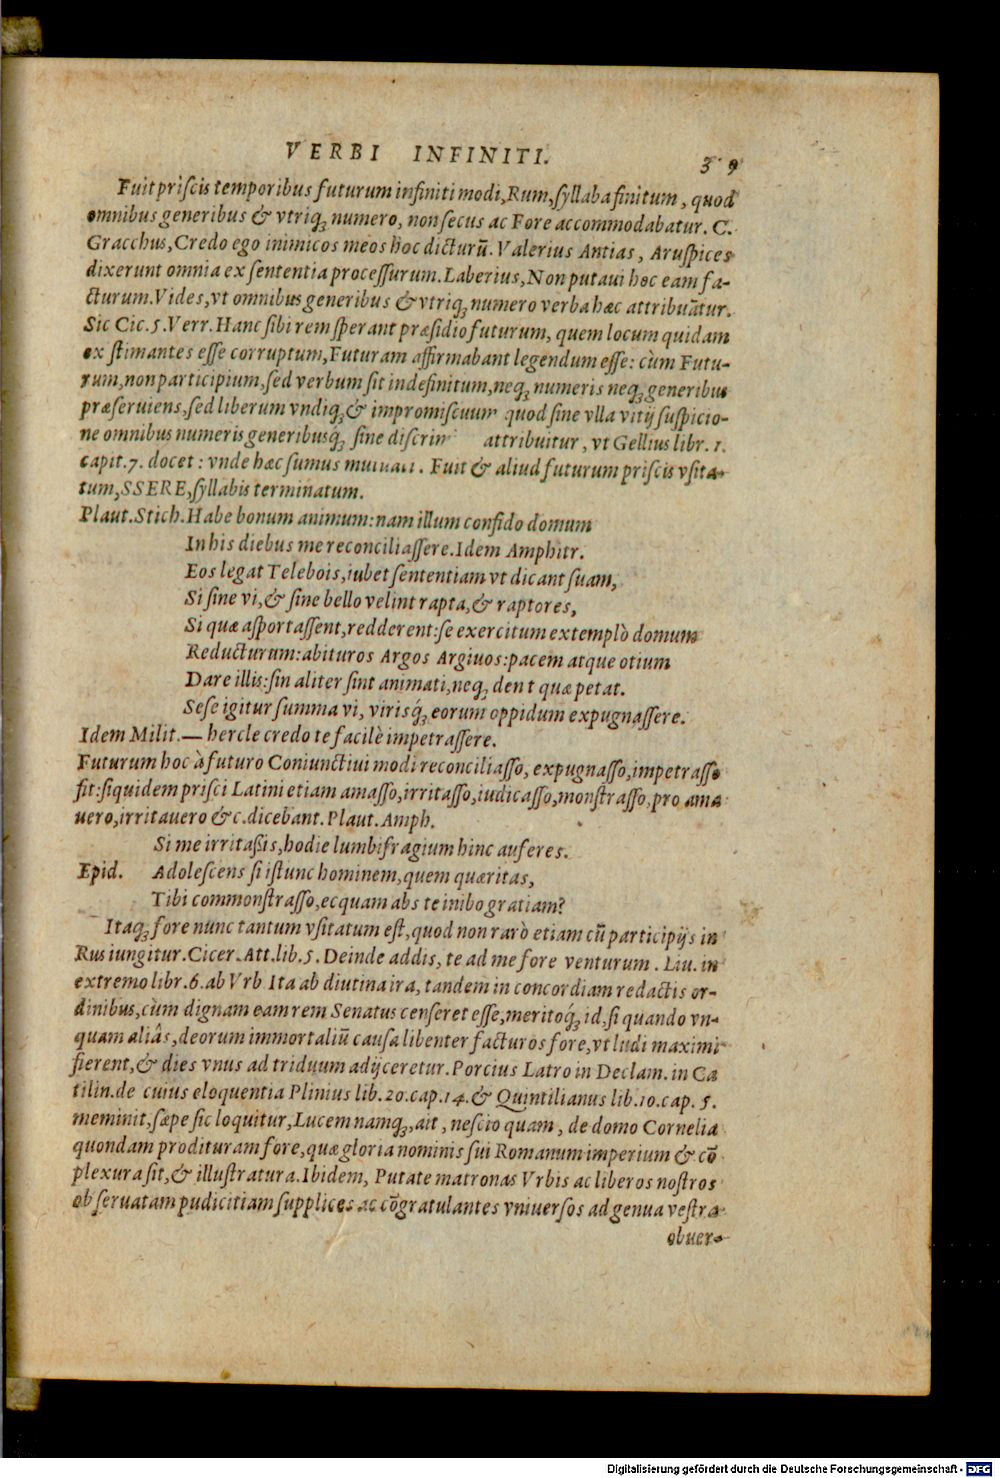 VERBI INFINITI. 39
Fuit priſcis temporibus futurum infiniti modi, Rum, ſyllaba finitum, quod
omnibus generibus & vtriq; numero, non ſecus ac Fore accommodabatur. C.
Gracchus, Credo ego inimicos meos hoc dicturū. Valerius Antias, Aruſpices
dixerunt omnia ex ſententia proceſſurum. Laberius, Non putaui hoc eam fa-
cturum. Vides, vt omnibus generibus & vtriq; numero verba hæc attribuātur.
Sic Cic. 5. Verr. Hanc ſibi rem ſperant præſidio futurum, quem locum quidam
exſtimantes eſſe corruptum, Futuram affirmabant legendum eſſe: cùm Futu-
rum, non participium, ſed verbum ſit indefinitum, neq; numeris neq; generibus
præſeruiens, ſed liberum vndiq; & impromiſcuum quod ſine vlla vitij ſuſpicio-
ne omnibus numeris generibusq; ſine diſcrim attribuitur, vt Gellius libr. 1.
capit. 7. docet: vnde hæc ſumus mutuati. Fuit & aliud futurum priſcis vſita-
tum, SSERE, ſyllabis terminatum.
Plaut. Stich. Habe bonum animum: nam illum confido domum
In his diebus me reconciliaſſere. Idem Amphitr.
Eos legat Telebois, iubet ſententiam vt dicant ſuam,
Si ſine vi, & ſine bello velint rapta, & raptores,
Si quæ aſportaſſent, redderent: ſe exercitum extemplò domum
Reducturum: abituros Argos Argiuos: pacem atque otium
Dare illis: ſin aliter ſint animati, neq; dent quæ petat.
Seſe igitur ſumma vi, virisq́; eorum oppidum expugnaſſere.
Idem Milit. — hercle credo te facilè impetraſſere.
Futurum hoc à futuro Coniunctiui modi reconciliaſſo, expugnaſſo, impetraſſo
fit: ſiquidem priſci Latini etiam amaſſo, irritaſſo, iudicaſſo, monſtraſſo, pro ama
uero, irritauero & c. dicebant. Plaut. Amph.
Si me irritaßis, hodie lumbifragium hinc auferes.
Epid. Adoleſcens ſi iſtunc hominem, quem quæritas,
Tibi commonſtraſſo, ecquam abs te inibo gratiam?
Itaq; fore nunc tantum vſitatum eſt, quod non rarò etiam cū participijs in
Rus iungitur. Cicer. Att. lib. 5. Deinde addis, te ad me fore venturum. Liu. in
extremo libr. 6. ab Vrb Ita ab diutina ira, tandem in concordiam redactis or-
dinibus, cùm dignam eam rem Senatus cenſeret eſſe, meritoq́; id, ſi quando vn-
quam aliâs, deorum immortaliū cauſa libenter facturos fore, vt ludi maximi
fierent, & dies vnus ad triduum adijceretur. Porcius Latro in Declam. in Ca
tilin. de cuius eloquentia Plinius lib. 20. cap. 14. & Quintilianus lib. 10. cap. 5.
meminit, ſæpe ſic loquitur, Lucem namq;, ait, neſcio quam, de domo Cornelia
quondam prodituram fore, quæ gloria nominis ſui Romanum imperium & cō
plexura ſit, & illuſtratura. Ibidem, Putate matronas Vrbis ac liberos noſtros
obſeruatam pudicitiam ſupplices ac cōgratulantes vniuerſos ad genua veſtra
obuer-
Digitalisierung gefördert durch die Deutsche Forschungsgemeinschaft - DFG